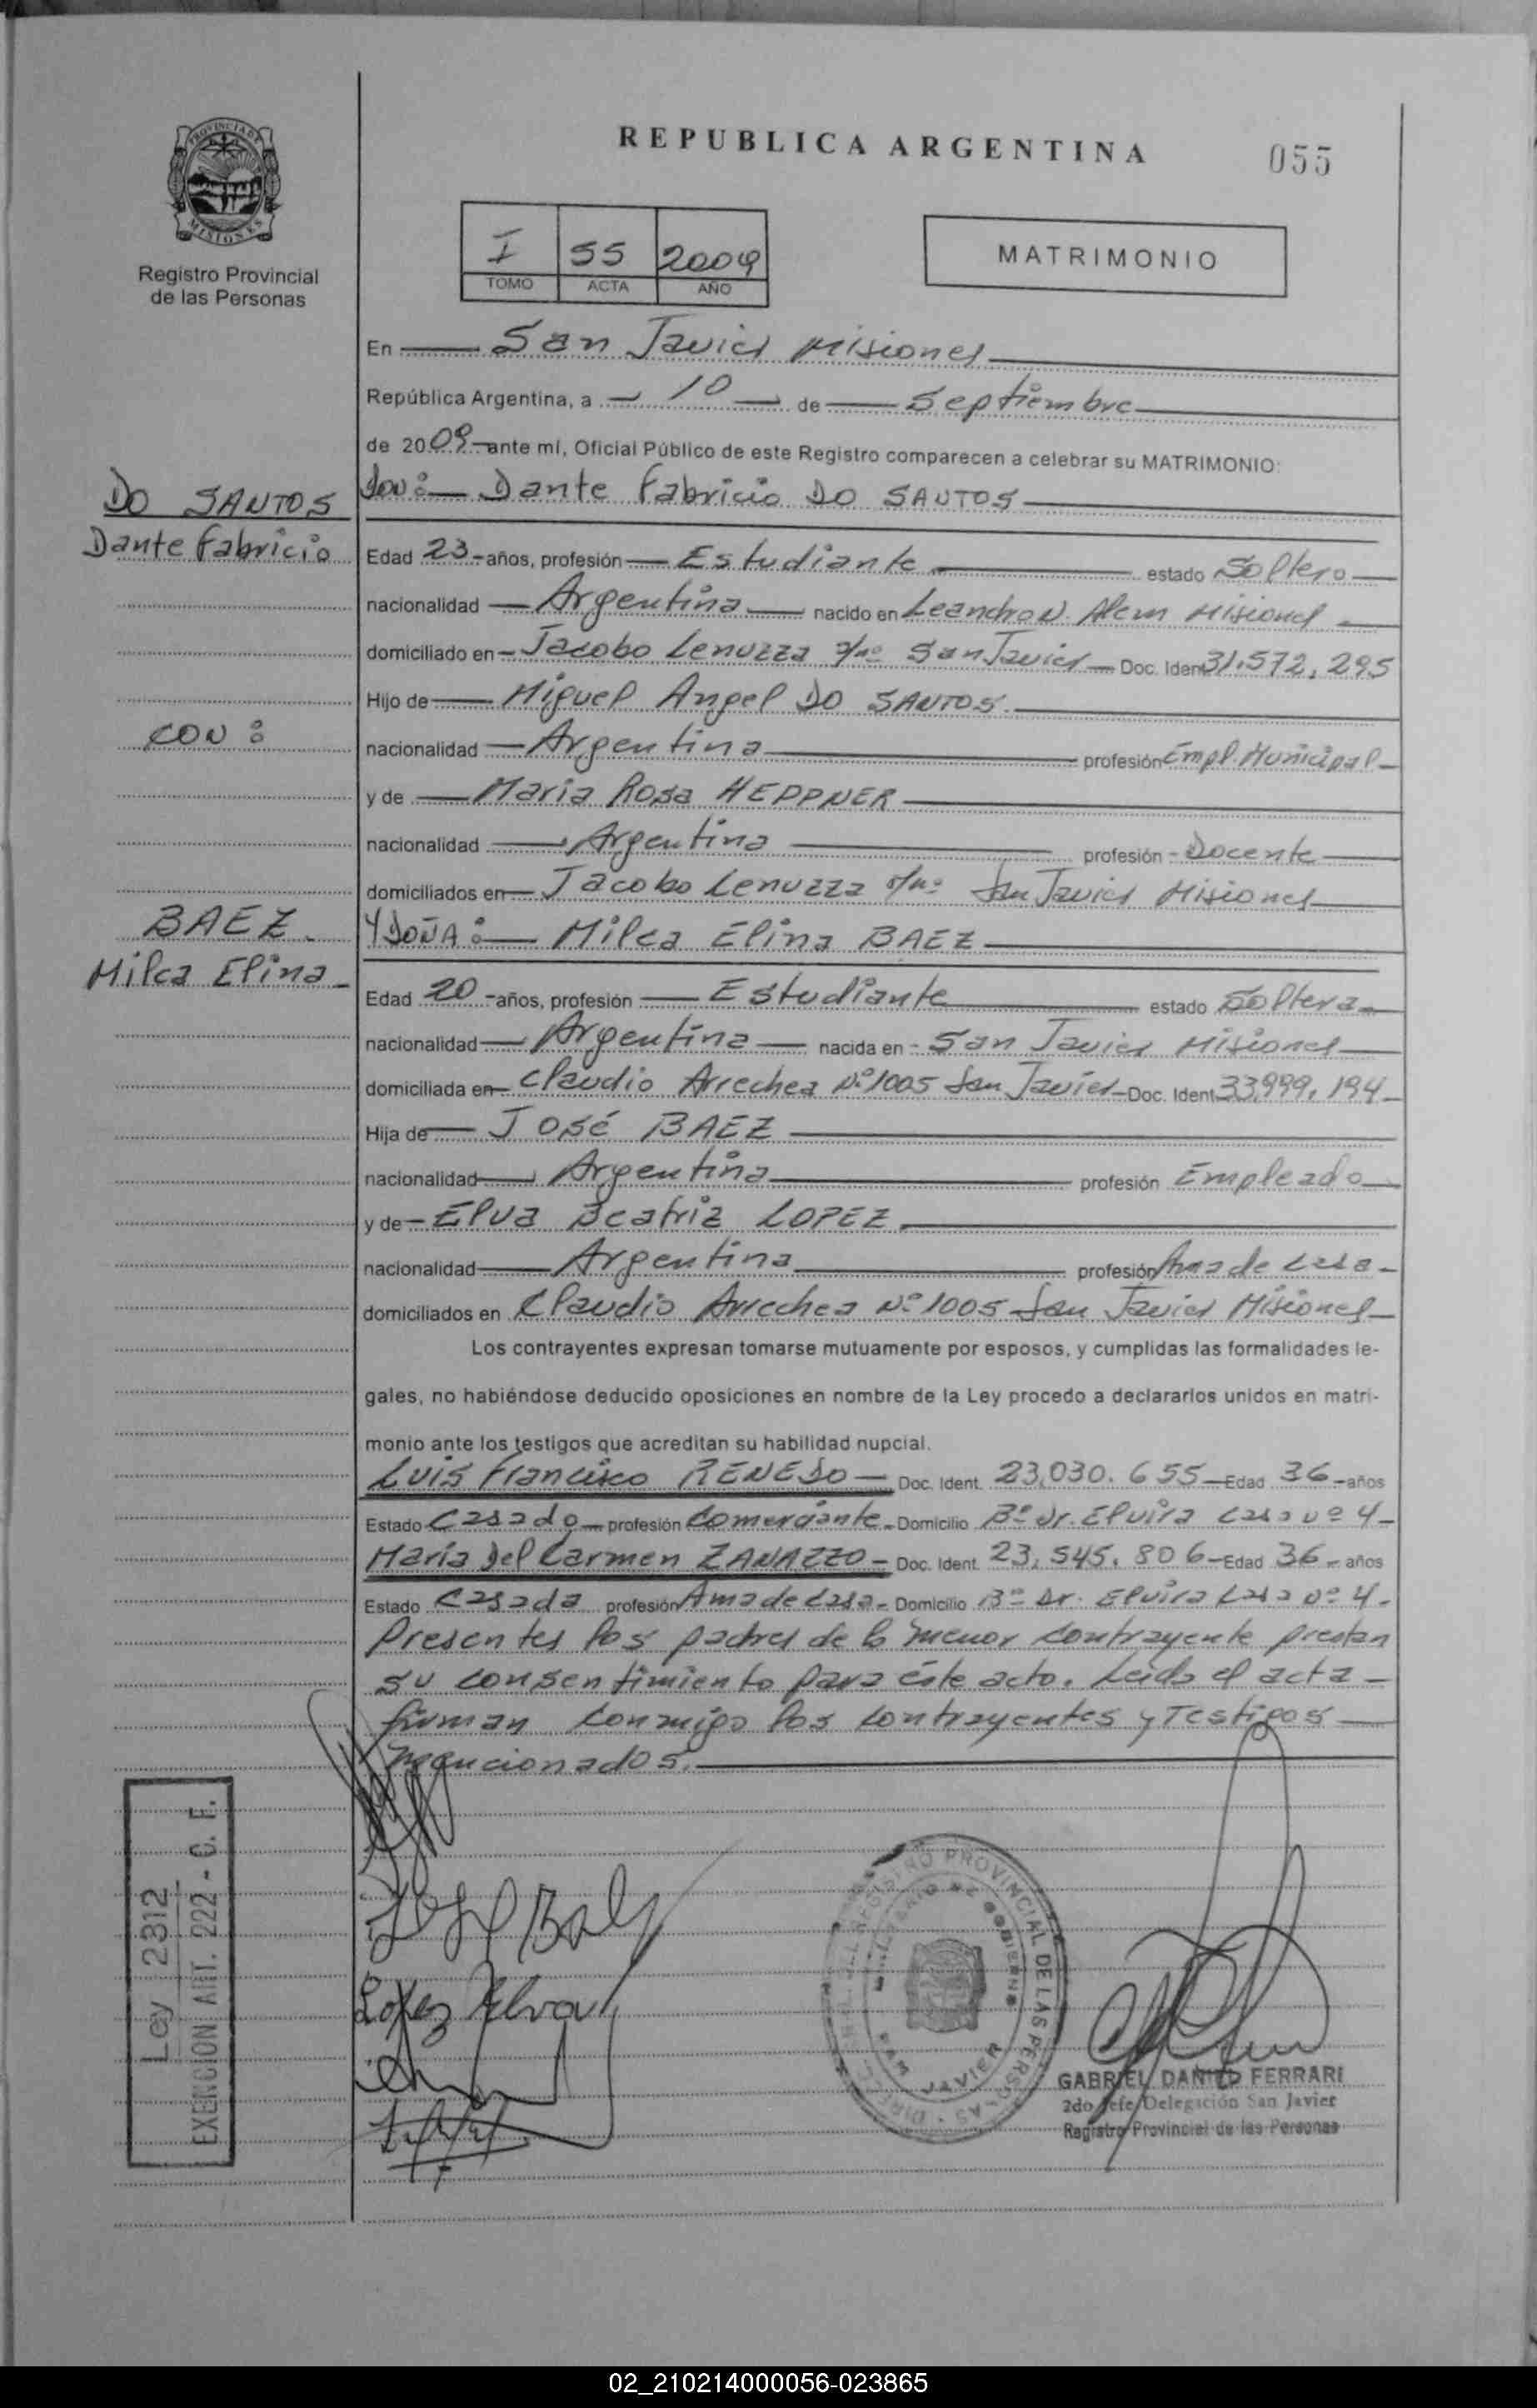 REPUBLICA ARGENTINA
055
PROVINCIA DE
MISIONES
Registro Provincial
de las Personas
I 55 2009
TOMO ACTA AÑO
MATRIMONIO
En San Javier Misiones
República Argentina, a 10 de Septiembre
de 2009 ante mí, Oficial Público de este Registro comparecen a celebrar su MATRIMONIO:
DO SANTOS
Dante Fabricio
CON:
BAEZ
Milca Elina
DON: Dante Fabricio DO SANTOS
Edad 23 años, profesión Estudiante estado Soltero
nacionalidad Argentina nacido en Leandro N. Alem Misiones
domiciliado en Jacobo Lenuzza s/nº San Javier Doc. Ident 31.572.295
Hijo de Miguel Angel DO SANTOS
nacionalidad Argentina profesión Empl. Municipal
y de Maria Rosa HEPPNER
nacionalidad Argentina profesión Docente
domiciliados en Jacobo Lenuzza s/nº San Javier Misiones
Y DOÑA: Milca Elina BAEZ
Edad 20 años, profesión Estudiante estado Soltera
nacionalidad Argentina nacida en San Javier Misiones
domiciliada en Claudio Arrechea Nº 1005 San Javier Doc. Ident 33.999.194
Hija de José BAEZ
nacionalidad Argentina profesión Empleado
y de Elva Beatriz LOPEZ
nacionalidad Argentina profesión Ama de casa
domiciliados en Claudio Arrechea Nº 1005 San Javier Misiones
Los contrayentes expresan tomarse mutuamente por esposos, y cumplidas las formalidades le-
gales, no habiéndose deducido oposiciones en nombre de la Ley procedo a declararlos unidos en matri-
monio ante los testigos que acreditan su habilidad nupcial.
Luis Francisco RENEDO Doc. Ident. 23.030.655 Edad 36 años
Estado Casado profesión Comerciante Domicilio Bº Dr. Elvira Casa Nº 4
María Del Carmen ZANAZZO Doc. Ident. 23.545.806 Edad 36 años
Estado Casada profesión Ama de casa Domicilio Bº Dr. Elvira Casa Nº 4
Presentes los padres de la menor contrayente prestan
su consentimiento para éste acto. Leida el acta
firman conmigo los contrayentes y Testigos
mencionados.
Ley 2312
EXENCION ART. 222 - C. F.
Lopez Elva
REGISTRO PROVINCIAL DE LAS PERSONAS
SAN JAVIER
GABRIEL DANIEL FERRARI
2do Jefe Delegación San Javier
Registro Provincial de las Personas
02_210214000056-023865